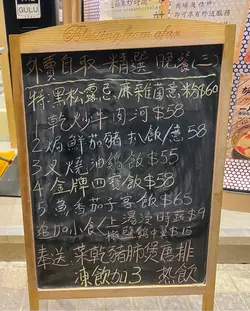 THE GULU
Meeting from afar
外賣自取 精選 晚餐(三)
特:黑松露忌𠆩麻雜菌意粉$60
1 乾炒牛肉河 $58
2 焗鮮茄豬扒飯/意 58
3 叉燒油鷄飯 $55
4 金牌四寶飯 $58
5 魚香茄子客飯 $65
追加小食/上湯浸時蔬 $9
梅醬鴨
奉送:菜乾豬肺煲唐排
凍飲加3 熱飲